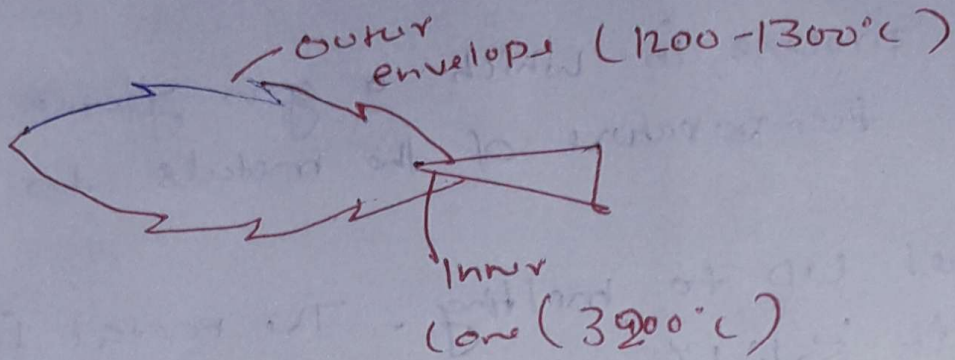 outer
envelope (1200-1300°C)
Inner
Cone (3200°C)